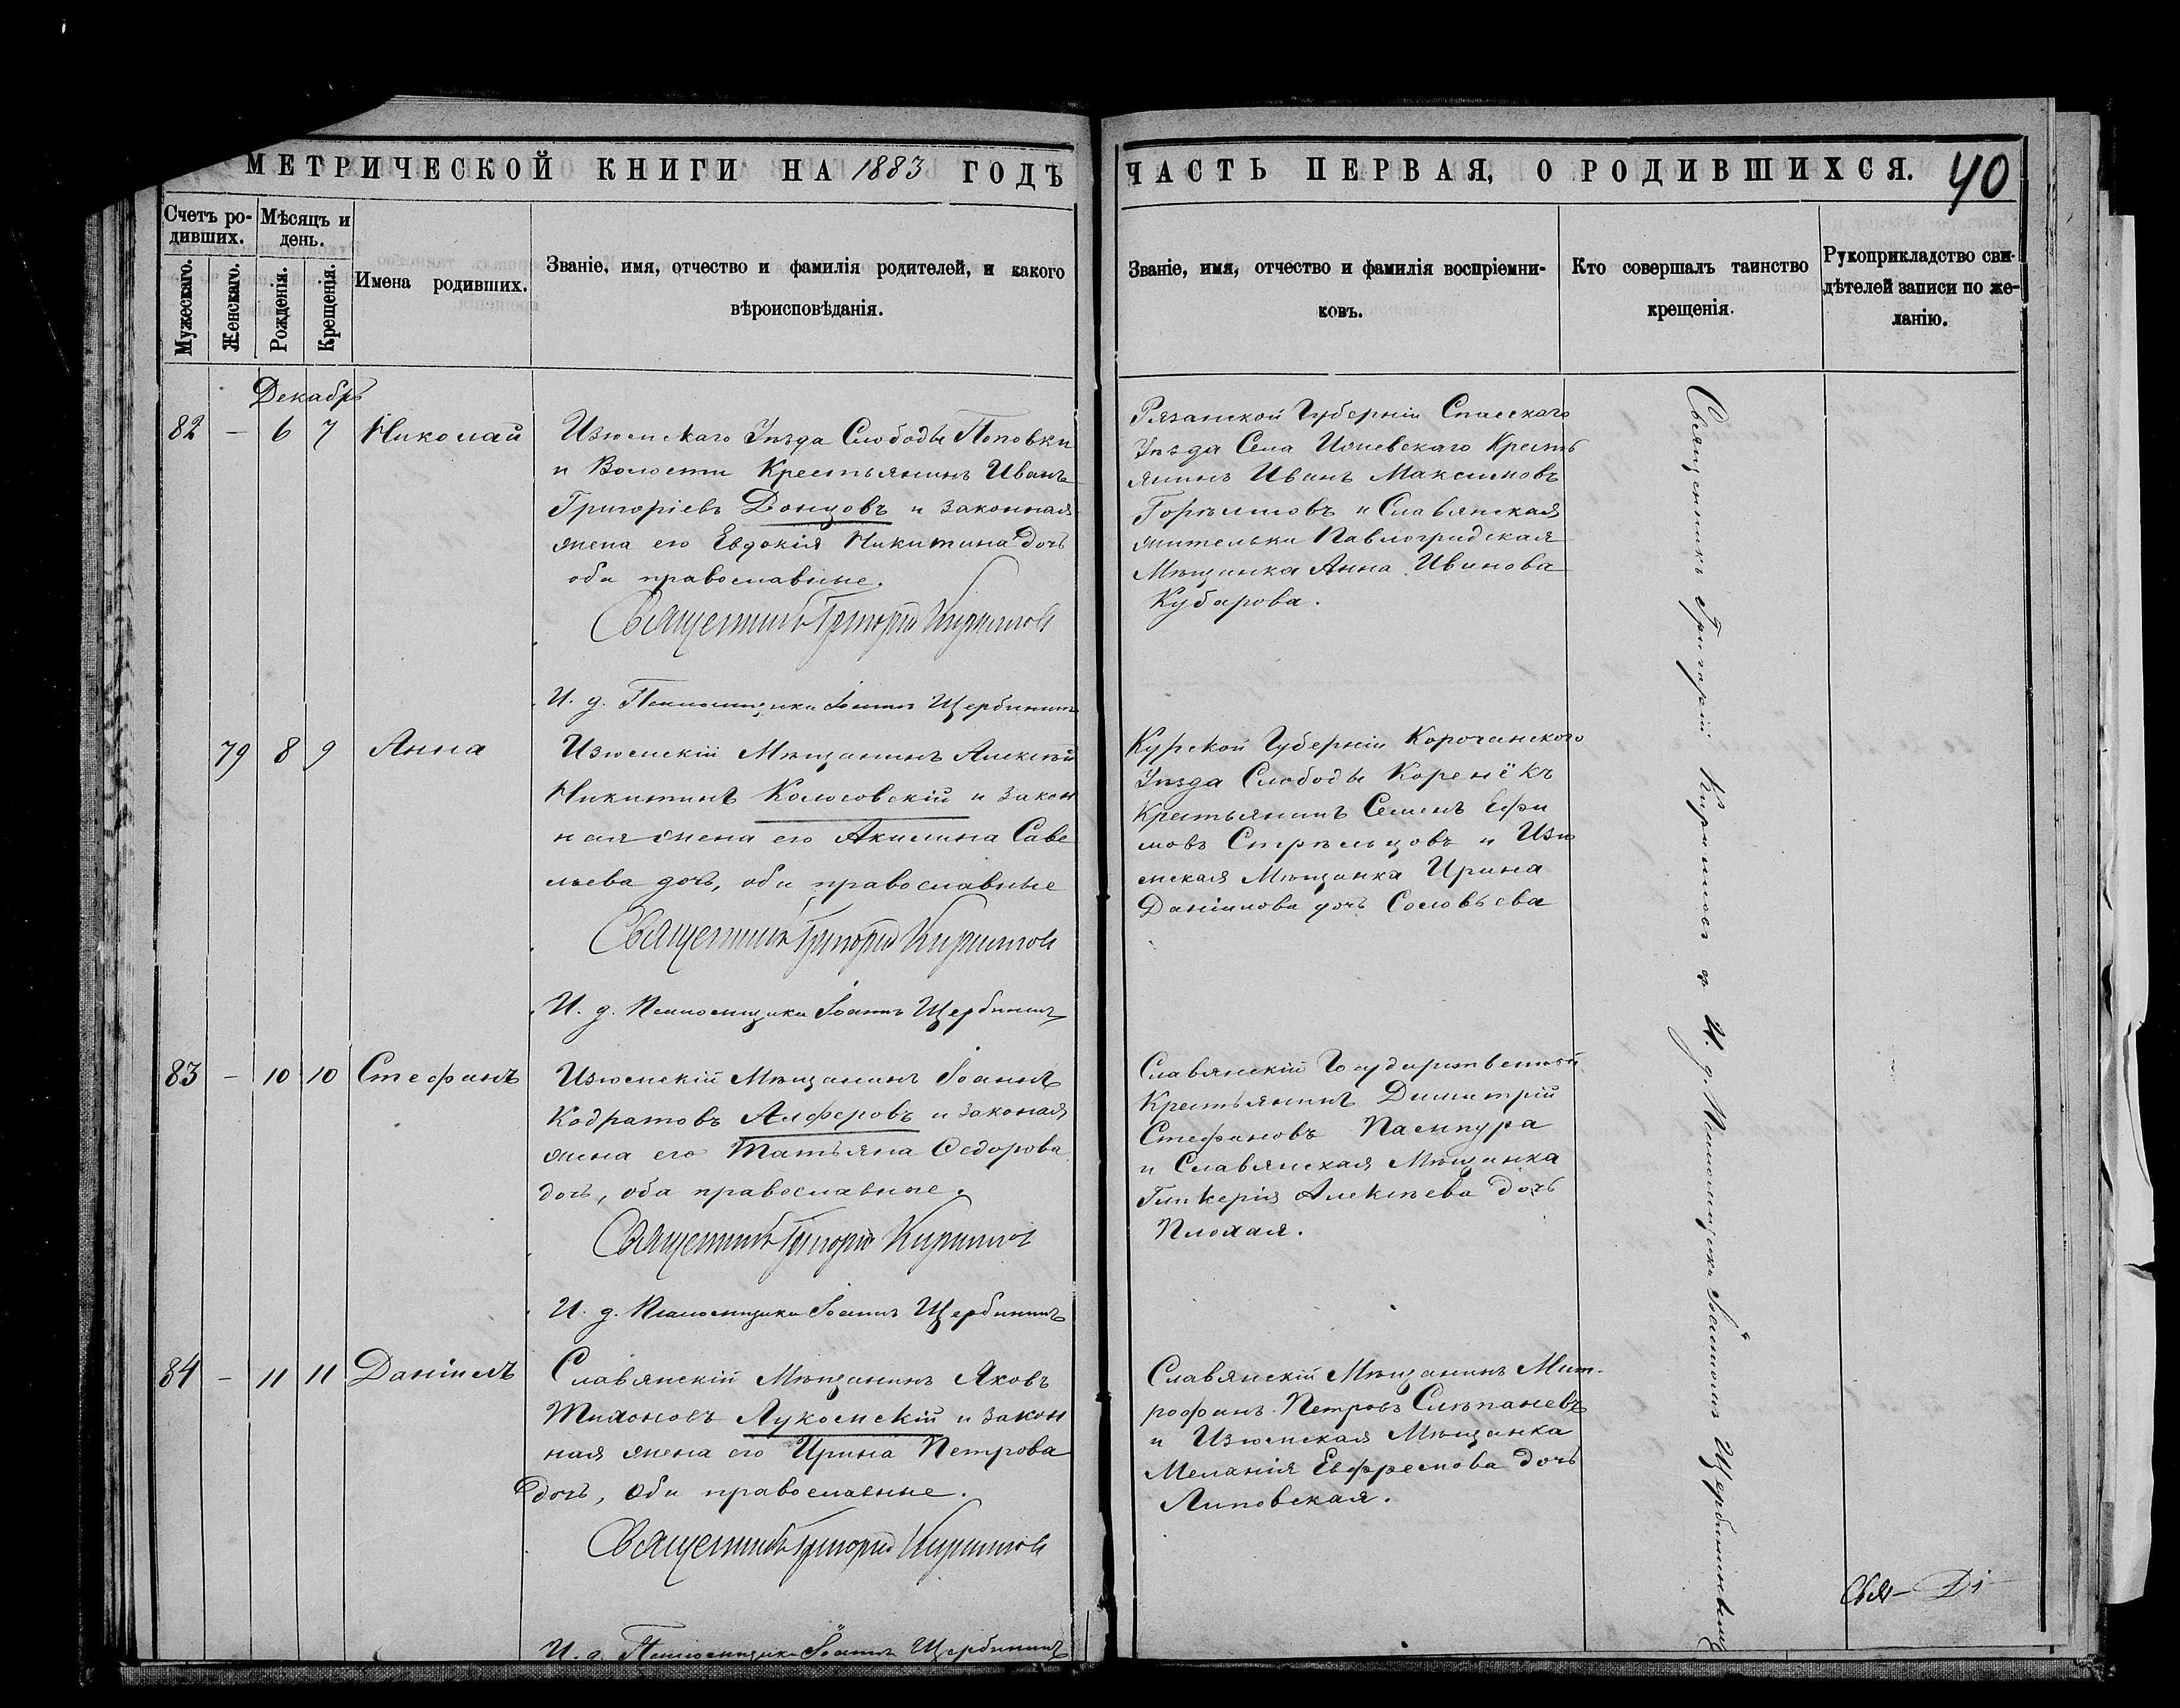 МЕТРИЧЕСКОЙ КНИГИ НА 1883 ГОДЪ
ЧАСТЬ ПЕРВАЯ, О РОДИВШИХСЯ. 40
Счетъ ро-
дившихъ.
Мужескаго.
Женскаго.
Мѣсяцъ и
день.
Рожденія.
Крещенія.
Имена родивших.
Званіе, имя, отчество и фамилія родителей, и какого
вѣроисповѣданія.
Званіе, имя, отчество и фамилія воспріемни-
ковъ.
Кто совершалъ таинство
крещенія.
Рукоприкладство сви-
дѣтелей записи по же-
ланію.
Декабрь
82 — 6 7 Николай
Изюмскаго Уѣзда Слободы Поповки
и Волости Крестьянинъ Иванъ
Григоріевъ Донцовъ и законная
жена его Евдокія Никитина дочь
оба православные.
Священникъ Григорій Кириловъ
И. д. Псаломщика Іоаннъ Щербининъ
Рязанской Губерніи Спасскаго
Уѣзда Села Ижевскаго Кресть
янинъ Иванъ Максимовъ
и Славянская
жителька Павлоградская
Мѣщанка Анна Иванова
Кубарова.
79 8 9 Анна
Изюмскій Мѣщанинъ Алексѣй
Никитинъ Колосовскій и закон
ная жена его Акилина Саве
льева дочь, оба православные
Священникъ Григорій Кириловъ
И. д. Псаломщика Іоаннъ Щербининъ
Курской Губерніи Корочанского
Уѣзда Слободы Коренёкъ
Крестьянинъ Семенъ Ефи
мовъ Стрѣльцовъ и Изю
мская Мѣщанка Ирина
Даніилова дочь Соловьева
83 — 10 10 Стефанъ
Изюмскій Мѣщанинъ Іоаннъ
Кодратовъ Алферовъ и законая
жена его Татьяна Ѳедорова
дочь, оба православные.
Священникъ Григорій Кириловъ
И. д. Псаломщика Іоаннъ Щербининъ
Славянскій Государственной
Крестьянинъ Димитрій
Стефановъ
и Славянская Мѣщанка
Гликерія Алексѣева дочь
Плохая.
84 — 11 11 Даніилъ
Славянскій Мѣщанинъ Яковъ
Тихоновъ Лукомскій и закон
ная жена его Ирина Петрова
дочь, оба православные.
Священникъ Григорій Кириловъ
И. д. Псаломщика Іоаннъ Щербининъ
Славянскій Мѣщанинъ Мит-
рофанъ Петровъ
и Изюмская Мѣщанка
Меланія Евфремова дочь
Липовская.
Священникъ Григорій Кириловъ съ И. д. Псаломщика Іоанномъ Щербининымъ
Свя— Ді—